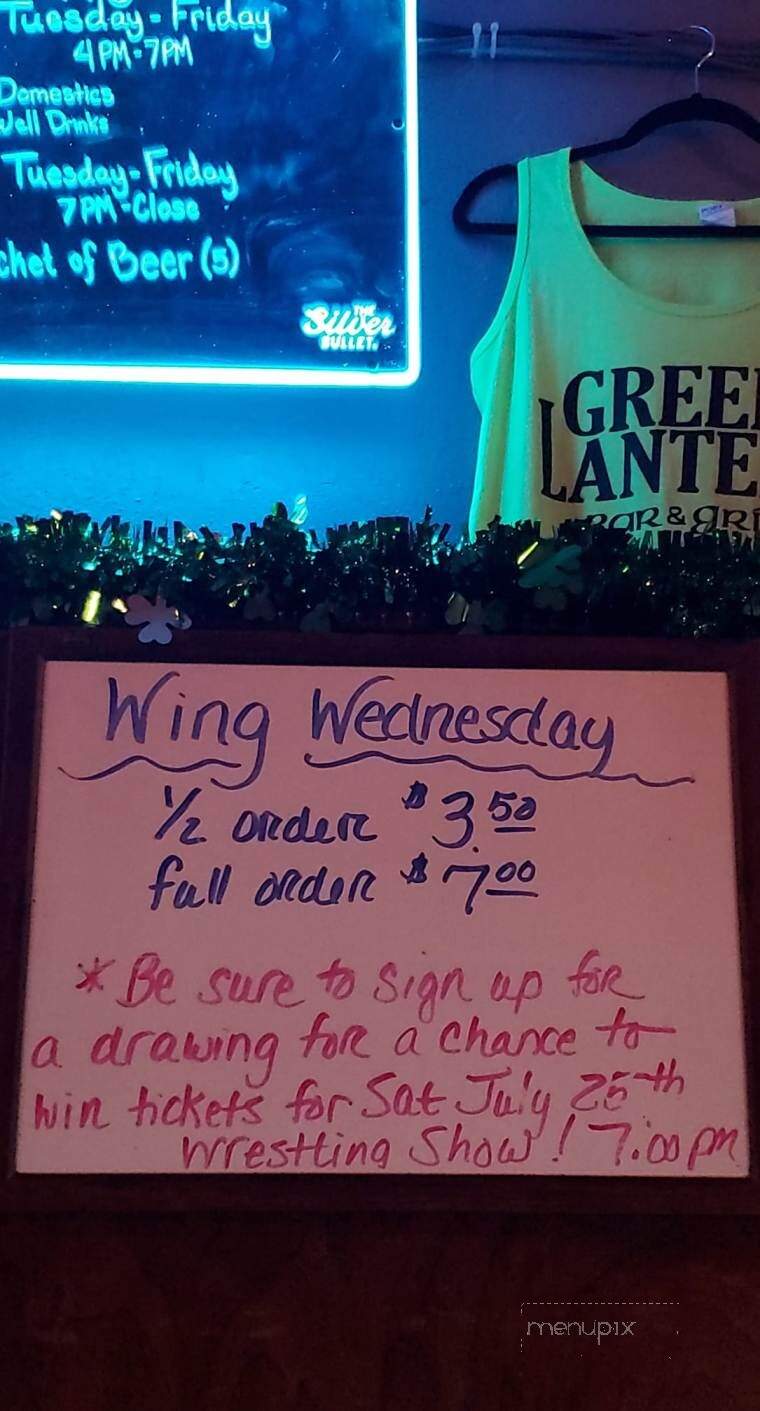 Tuesday - Friday
4PM-7PM
Domestics
Well Drinks
Tuesday-Friday
7PM-Close
cket of Beer (5)
THE
Silver
BULLET.
GREE
LANTE
BAR & GRI
Wing Wednesday
1/2 order $3.50
full order $7.00
* Be sure to sign up for
a drawing for a chance to
win tickets for Sat July 25th
Wrestling Show! 7:00 pm
menupix